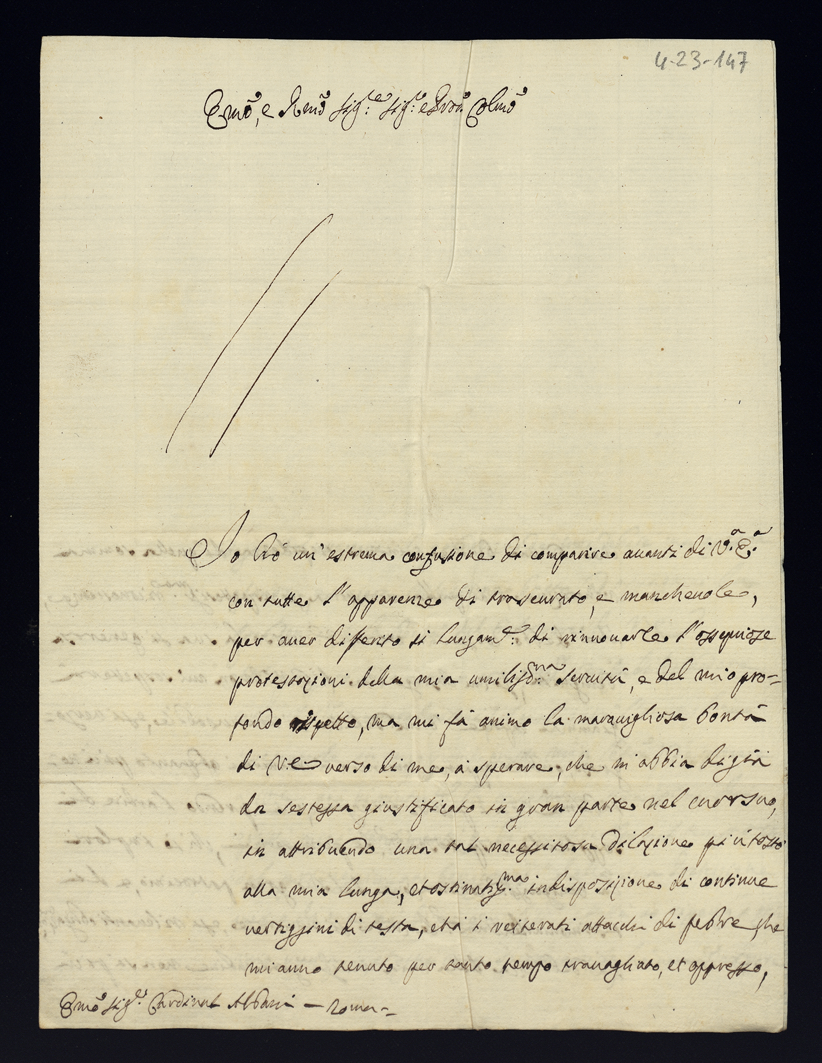 4-23-147
Emo, e Rmo Sig.re Sig.r e Prōn Colmo
Io hò un'estrema confusione di comparire auanti di V.a E.a
con tutte l'apparenze di trascurato, e mancheuole,
per auer differito sì lungam.te di rinnouarle l'ossequiose
protestazioni della mia umiliss.ma seruitù, e del mio pro-
fondo rispetto, ma mi fà animo la marauigliosa bontà
di V.E. verso di me, à sperare, che m'abbia di già
da sestessa giustificato in gran parte nel cuor suo,
in attribuendo una tal necessitosa dilazione più tosto
alla mia lunga, et ostinatiss.ma indisposizione di continue
uertiggini di testa, et à i reiterati attacchi di febbre, che
mi anno tenuto per tanto tempo trauagliato, et oppresso,
Emo Sig.r Cardinal Albani — Roma =